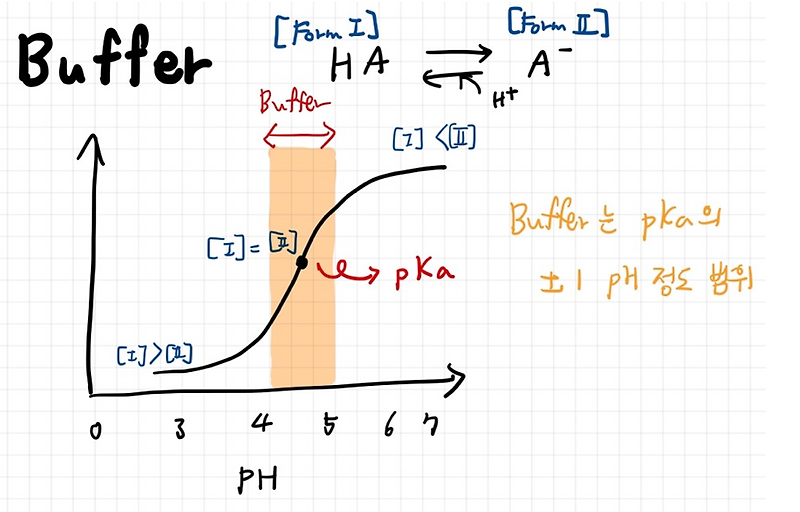 Buffer
[Form I]
[Form II]
HA
A⁻
H⁺
Buffer
[I] < [II]
[I] = [II]
pKa
[I] > [II]
0 3 4 5 6 7
PH
Buffer는 pKa의
±1 pH 정도 범위